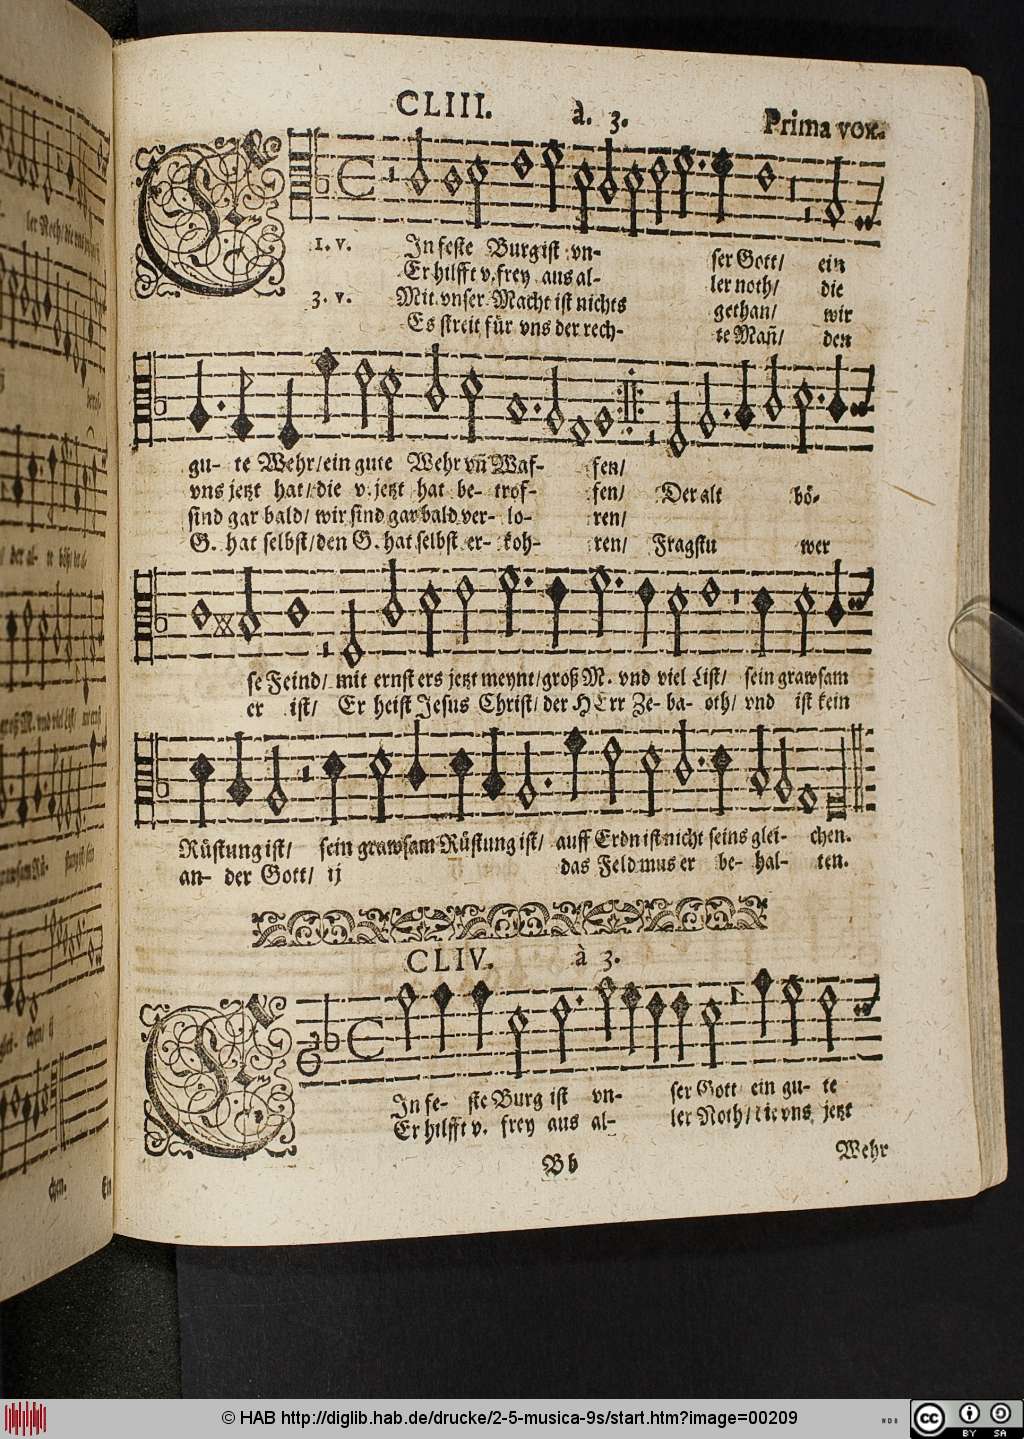 CLIII. à. 3. Prima vox.
1. v. EIn feste Burg ist vn- ser Gott/ ein
Er hilfft v. frey aus al- ler noth/ die
3. v. Mit vnser Macht ist nichts gethan/ wir
Es streit für vns der rech- te Mañ/ den
gu- te Wehr/ ein gute Wehr vñ Waf- fen/
vns jetzt hat/ die v. jetzt hat be- trof- fen/ Der alt bö-
sind gar bald/ wir sind gar bald ver- lo- ren/
G. hat selbst/ den G. hat selbst er- koh- ren/ Fragstu wer
se Feind/ mit ernst ers jetzt meynt/ groß M. vnd viel List/ sein grawsam
er ist/ Er heist Jesus Christ/ der HErr Ze- ba- oth/ vnd ist kein
Rüstung ist/ sein grawsam Rüstung ist/ auff Erdn ist nicht seins glei- chen.
an- der Gott/ ij das Feld mus er be- hal- ten.
CLIV. à 3.
EIn fe- ste Burg ist vn- ser Gott ein gu- te
Er hilfft v. frey aus al- ler Noth/ die vns jetzt
Bb Wehr
© HAB http://diglib.hab.de/drucke/2-5-musica-9s/start.htm?image=00209
cc BY SA